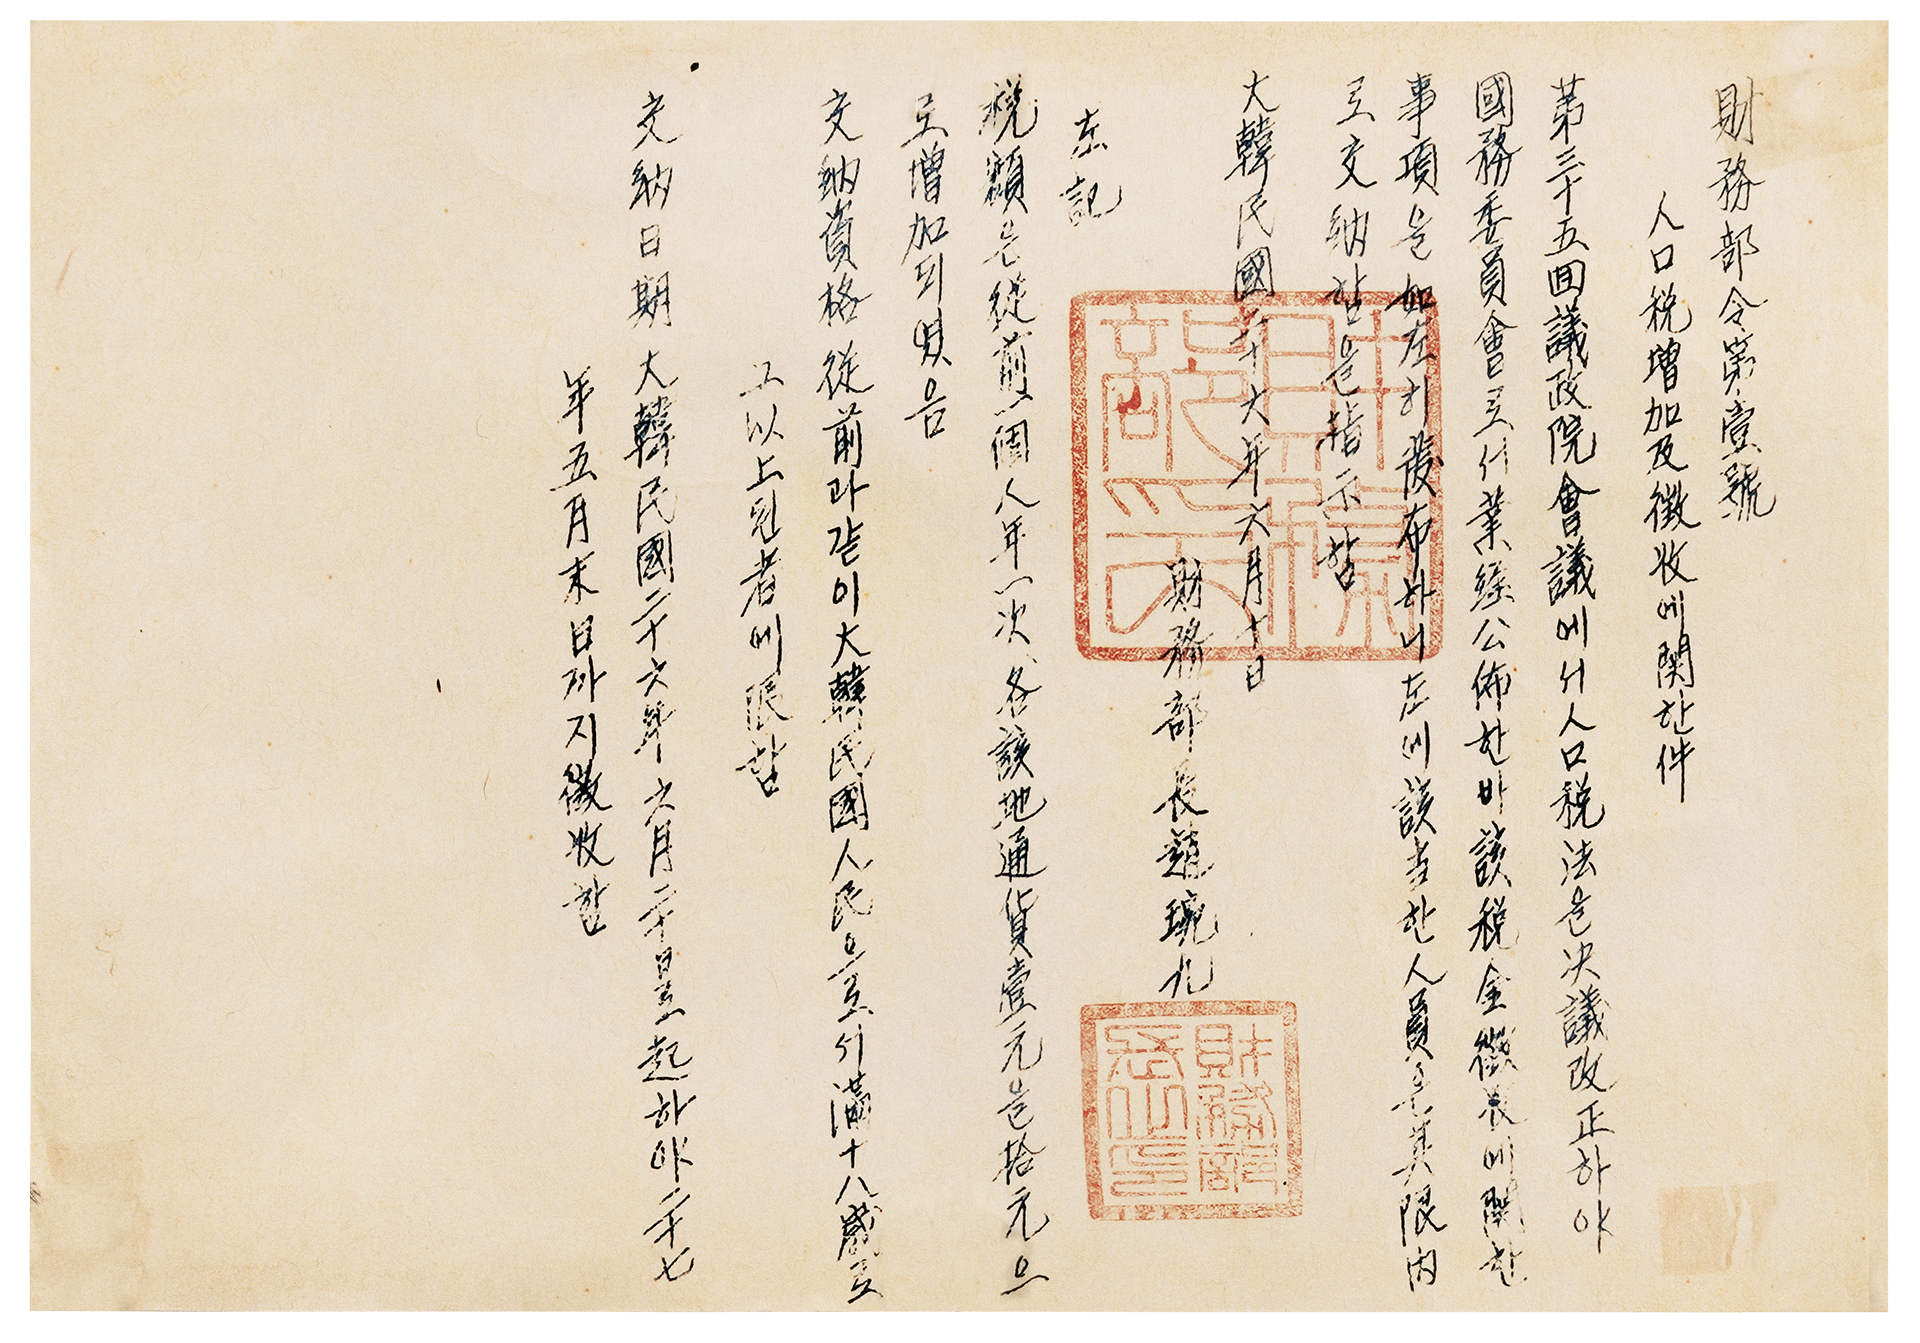 財務部令第壹號
人口稅增加及徵收에関한件
第三十五回議政院會議에서人口稅法을決議改正하야
國務委員會로서業經公佈한바該稅金徵収에関한
事項을如左히發布하니左에該当한人員은其限内
로交納함을指示함
大韓民國二十六年六月十日
財務部長趙琬九
左記
稅額은從前一個人年一次、各該地通貨壹元을拾元으
로增加되엿음
交納資格從前과같이大韓民國人民으로서滿十八歲로
그以上된者에限함
交納日期大韓民國二十六年六月二十日로起하야二十七
年五月末日까지徵收함
財務部
長之印